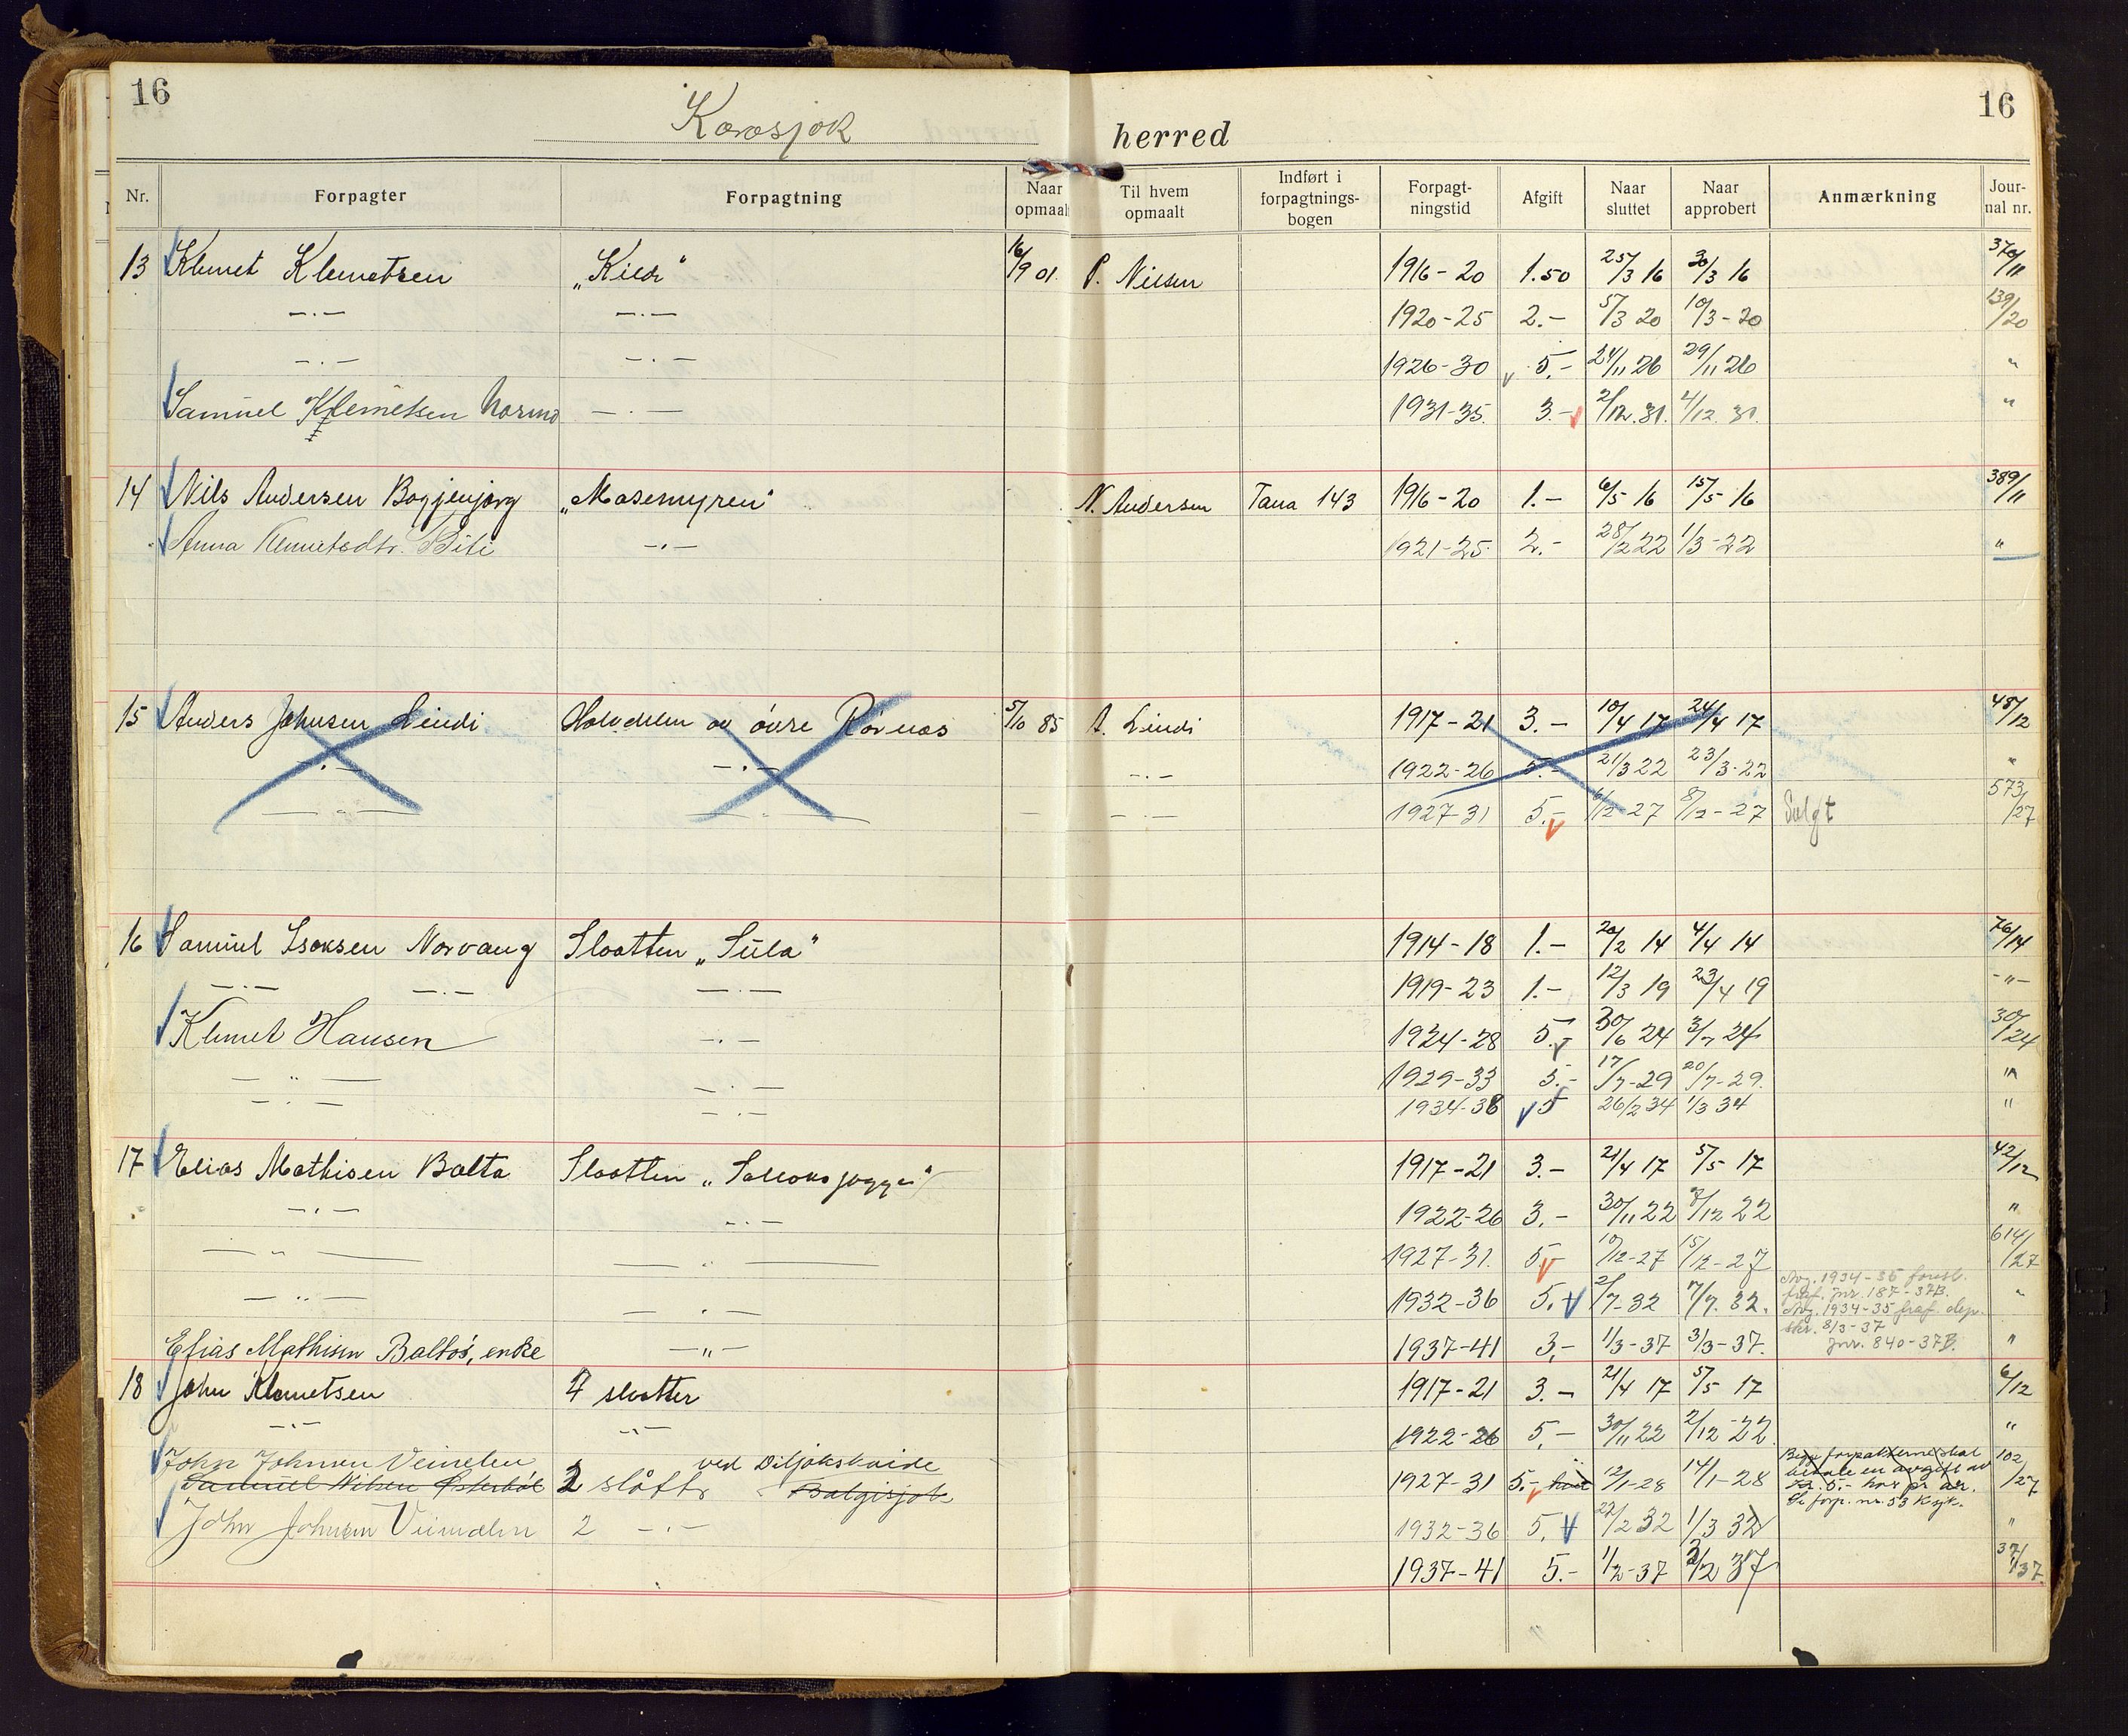 16
Karasjok
herred
16
Nr. Forpagter Forpagtning Naar opmaalt Til hvem opmaalt Indført i forpagtnings-bogen Forpagt-ningstid Afgift Naar sluttet Naar approbert Anmærkning Jour-nal nr.
13 Klemet Klemetsen „Kildr“ 16/9 01. P. Nielsen 1916-20 1.50 25/3 16 30/3 16 370/11
—·— —·— 1920-25 2.- 5/3 20 10/3-20 139/20
—·— —·— 1926-30 5.- 24/11 26 29/11 26 "
Samuel Klemetsen —·— 1931-35. 3.- 2/12.31. 4/12.31. "
14 Nils Andersen Boggjenjarg „Mosemyren“ N. Andersen Tana 143 1916-20 1.- 6/5 16 15/5 16 389/11
Anna Klemetsdtr. Biti —·— 1921-25. 2.- 28/2 22 1/3-22 "
15 Anders Johnsen Lindi Halvdelen av övre Rövnes 5/10 85 A. Lindi 1917-21 3.- 10/4 17 24/4 17 45/12
—·— —·— —·— 1922-26 5.- 21/3 22 23/3-22 "
—·— —·— — —·— 1927-31 5.- 6/12-27 8/12-27 Solgt 573/27
16 Samuel Isaksen Norvang Slaatten „Sula“ 1914-18 1.- 20/2 14 4/4 14 76/14
—·— —·— —·— 1919-23 1.- 12/3 19 23/4 19 -"-
Klemet Hansen —·— 1924-28 5.- 30/6 24 3/7 24 30/24
— " — —·— 1929-33 5.- 17/7-29 20/7-29. "
—·— —·— 1934-38 5 26/2 34 1/3 34 "
17 Elias Mathisen Balto Slaatten 1917-21 3.- 21/4 17 5/5 17 42/12
—·— —·— 1922-26 3.- 30/11 22 7/12 22 "
— " — — " — 1927-31. 5 10/12-27 15/12-27 614/27
— " — —·— 1932-36 5. 2/7-32 7/7.32. Avg. 1934-35 "
jnr. 187-37B.
Avg. 1934-35 fraf. dep.
skr. 8/3-37
jnr. 840-37B.
Elias Mathisen Baltos, enke —"— 1937-41 3,- 1/3-37 3/3-37. "
18 John Klemetsen 4 slaatter 1917-21 3.- 21/4 17 5/5 17 6/12
—"— —"— 1922-26 5,- 30/11 22 2/12-22 "
John Johnsen Veimelen ved Diljokskaide Begge forpakterne skal
Samuel Nilsen Østerbøl 2 slåtter Balgisjok 1927-31 5.- hver 12/1-28 14/1-28 betale en avgift av 102/27
Kr. 5.- hver pr år.
Se forp. nr. 53 Ksjk.
John Johnsen Veimelen 2 —·— 1932-36 5. 27/2 32 1/3 32 "
1937-41 5.- 1/2-37 2/2 37 37/37.